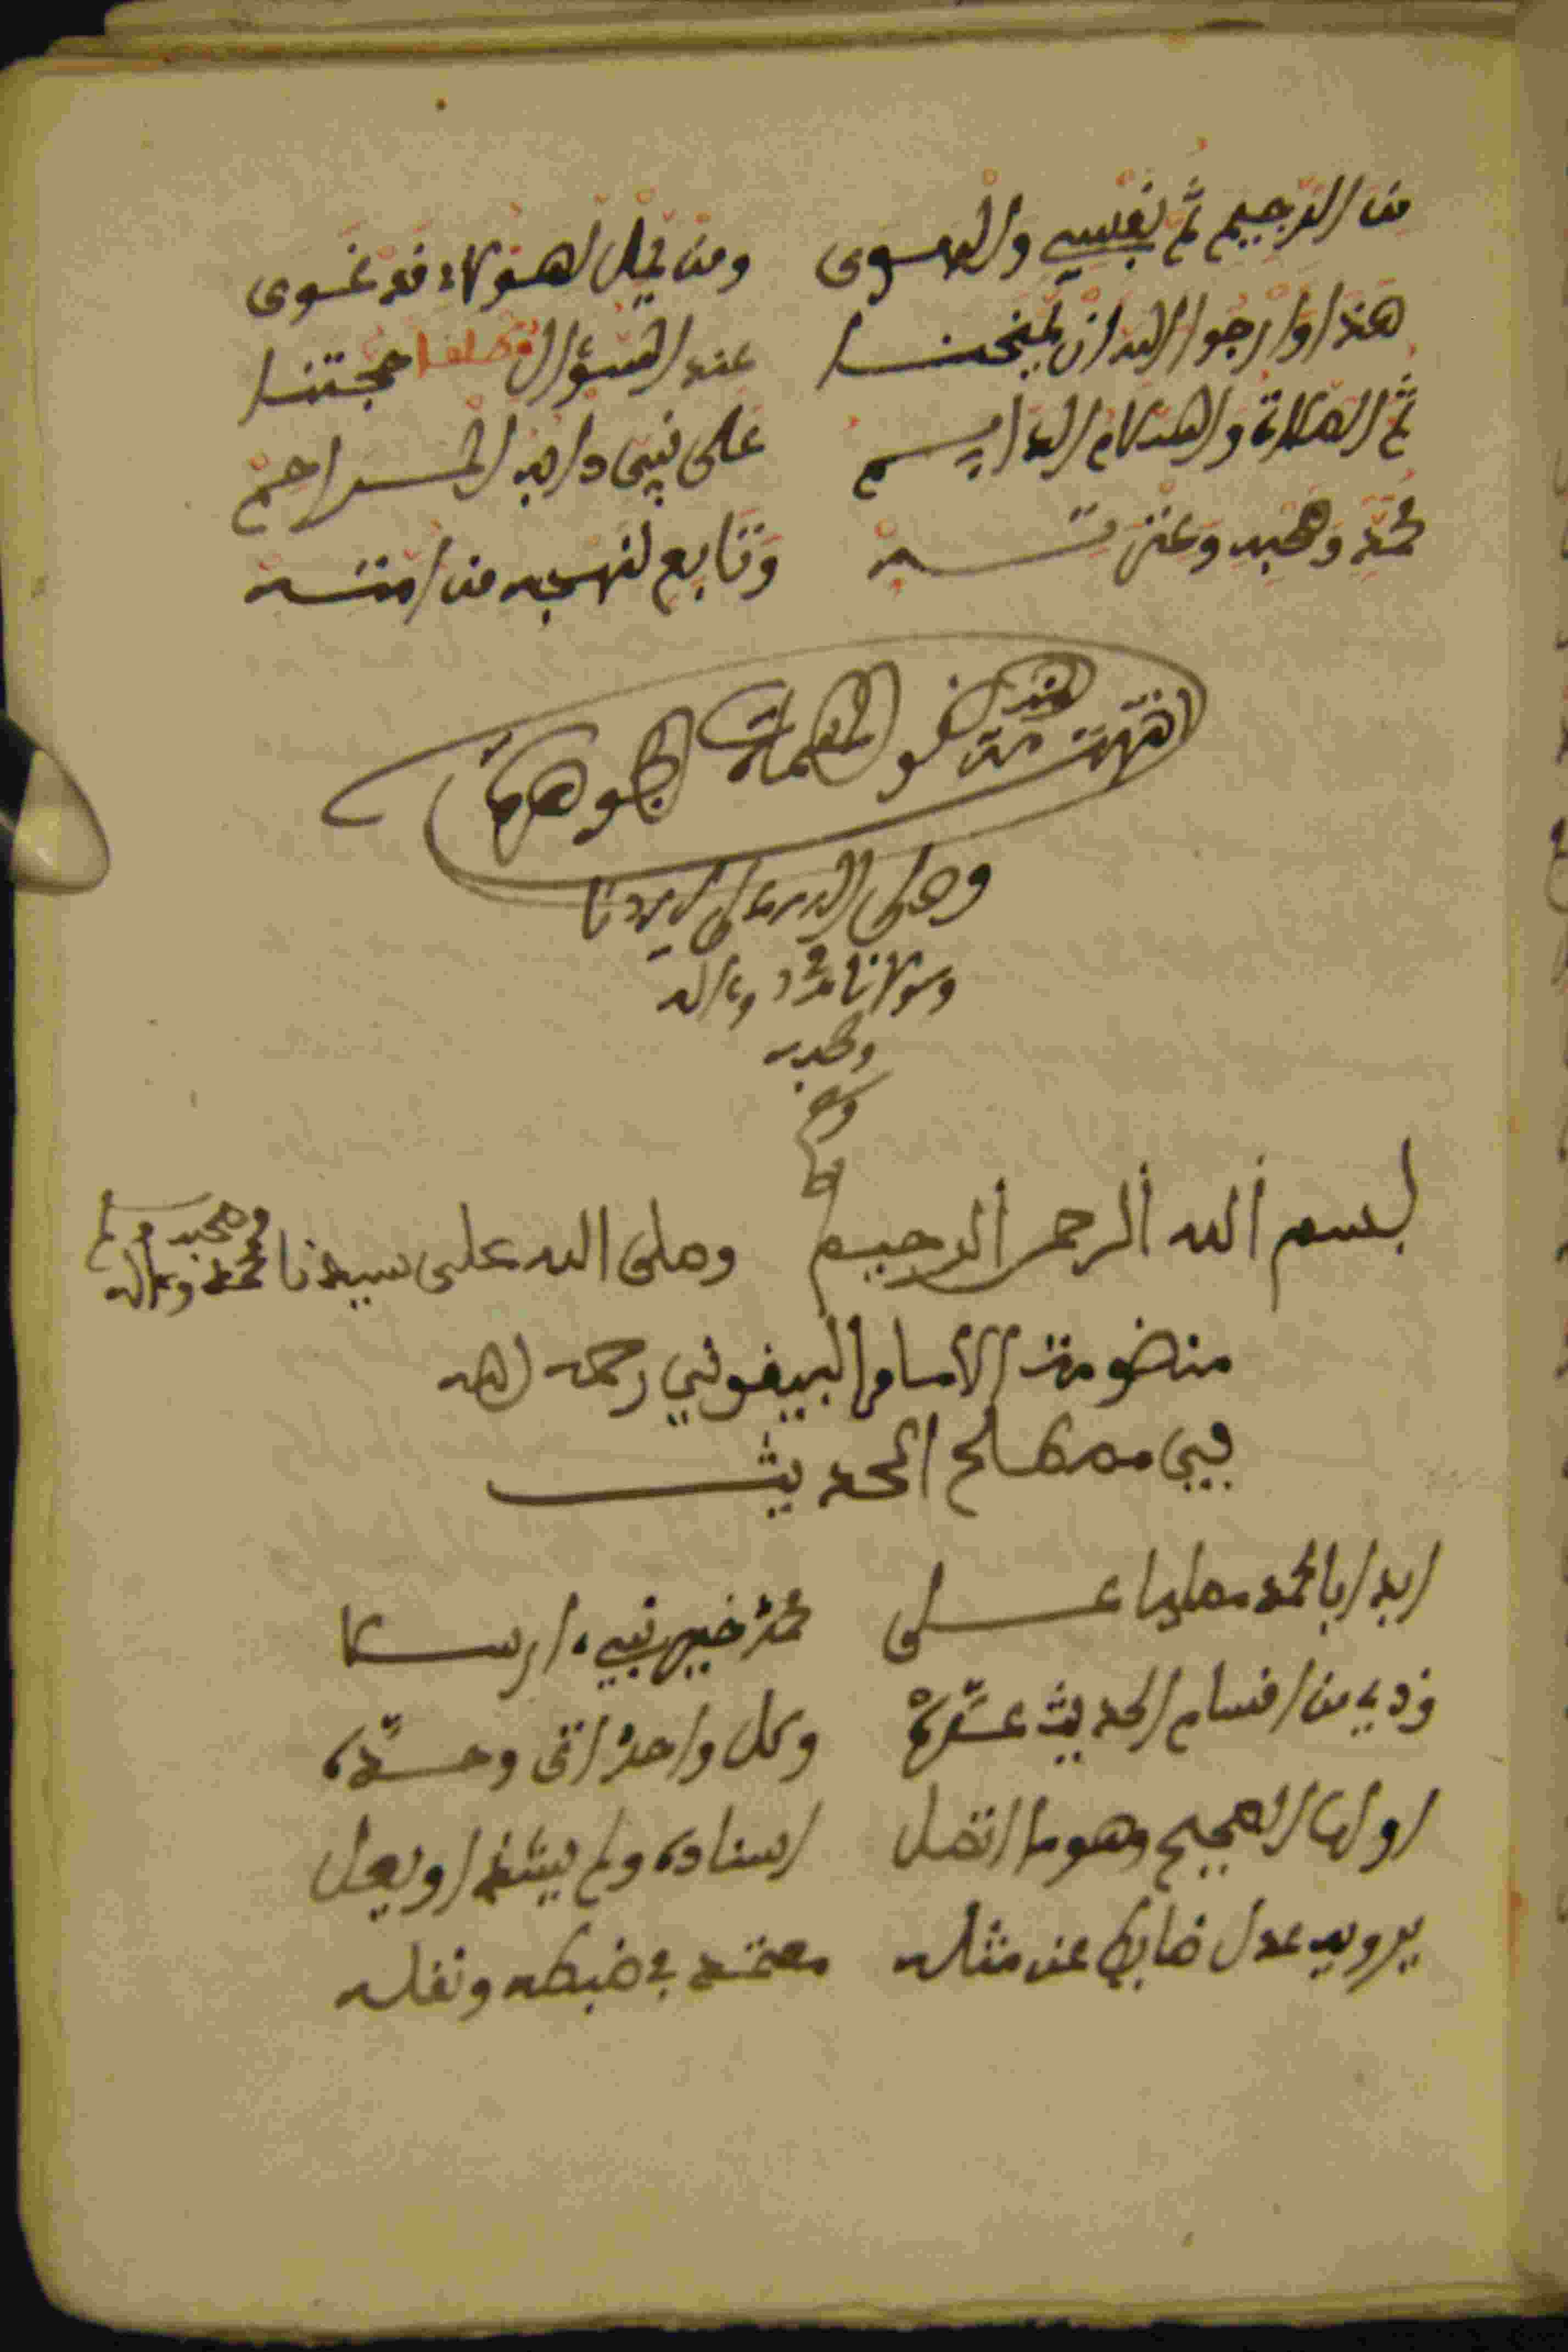 من الرجيم ثم نفسي والهوى ومن يمل لهؤلاء قد غوى
هذا وارجوا الله ان يمنحنا عند السؤال مطلقا حجتنا
ثم الصلاة والسلام الدايم على نبي دابه المراحم
محمد وصحبه وعترته وتابع لنهجه من امته
انتهت الجوهرة
وصلى الله على سيدنا
ومولانا محمد وءاله
وصحبه
بسم الله الرحمن الرحيم وصلى الله على سيدنا محمد وءاله وصحبه وسلم
منضومة الامام البيقوني رحمه الله
في مصطلح الحديث
ابدا بالحمد مصليا على محمد خير نبيء ارسلا
وذي من اقسام الحديث عده وكل واحد اتى وحده
اولها الصحيح وهو ما اتصل اسناده ولم يشذ او يعل
يرويه عدل ضابط عن مثله معتمد في ضبطه ونقله